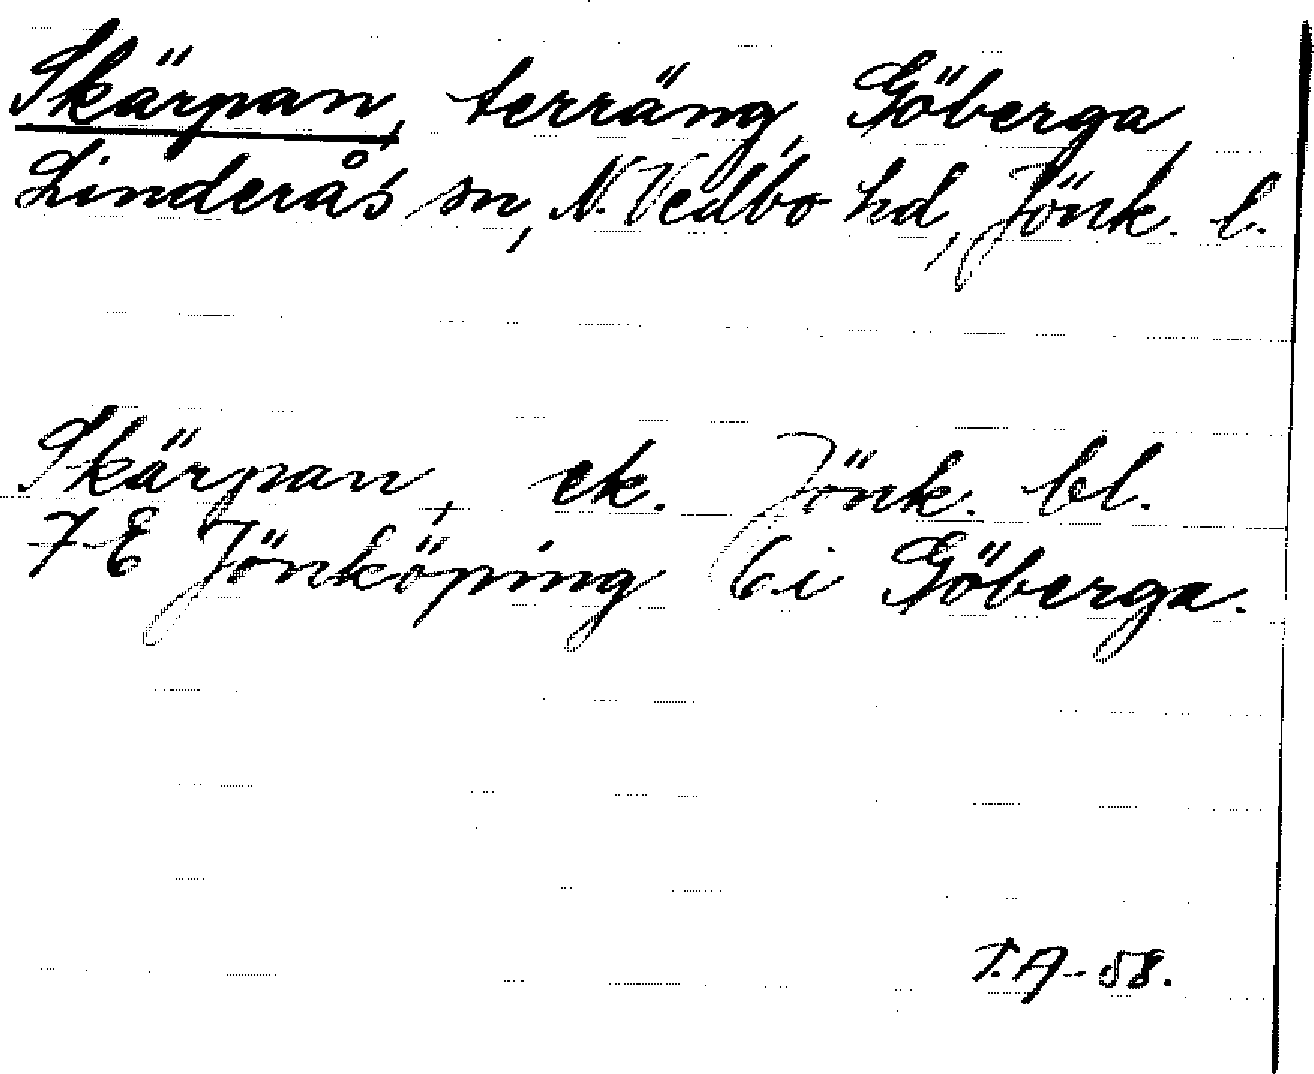 Skärpan, terräng, Göberga
Linderås sn, N. Vedbo hd, Jönk. l.
Skärpan, ek. Jönk. bl.
7 E Jönköping 6 i Göberga.
T.A-58.